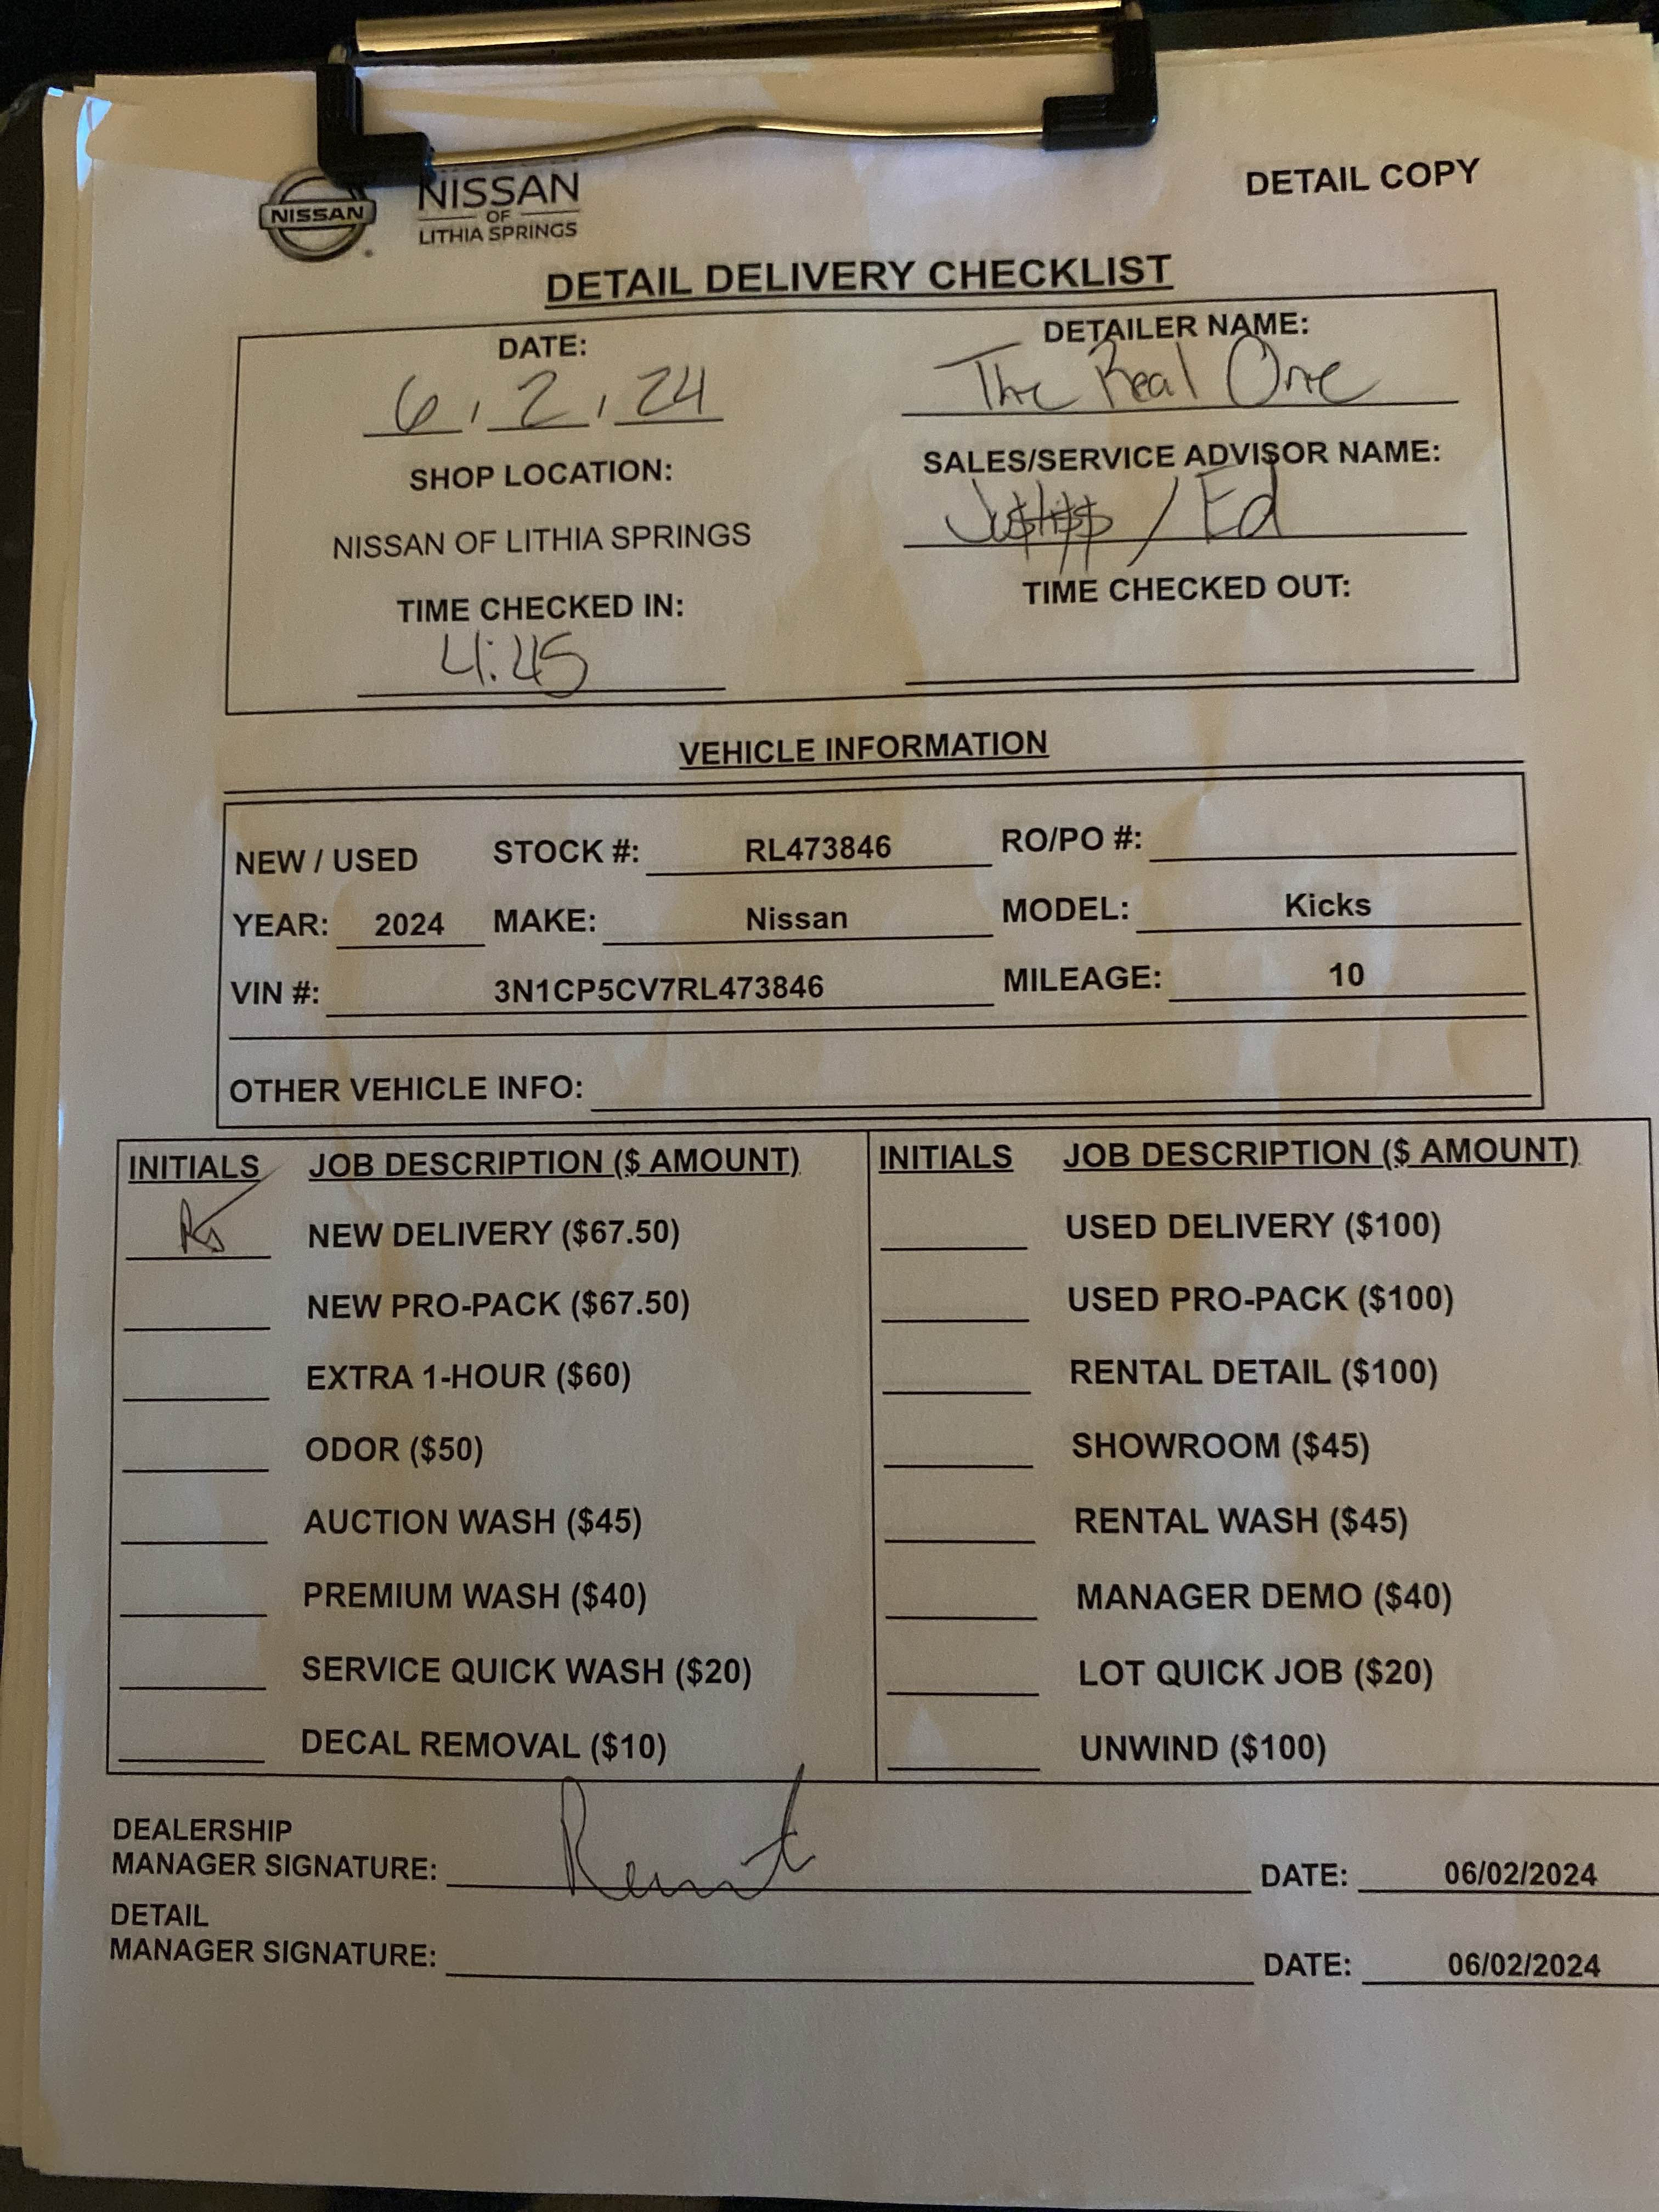 NISSAN
NISSAN
OF
LITHIA SPRINGS
DETAIL COPY
DETAIL DELIVERY CHECKLIST
DATE: DETAILER NAME:
6 , 2 , 24 The Real One
SHOP LOCATION: SALES/SERVICE ADVISOR NAME:
NISSAN OF LITHIA SPRINGS / Ed
TIME CHECKED IN: TIME CHECKED OUT:
4:45
VEHICLE INFORMATION
NEW / USED STOCK #: RL473846 RO/PO #:
YEAR: 2024 MAKE: Nissan MODEL: Kicks
VIN #: 3N1CP5CV7RL473846 MILEAGE: 10
OTHER VEHICLE INFO:
INITIALS JOB DESCRIPTION ($ AMOUNT) INITIALS JOB DESCRIPTION ($ AMOUNT)
NEW DELIVERY ($67.50) USED DELIVERY ($100)
NEW PRO-PACK ($67.50) USED PRO-PACK ($100)
EXTRA 1-HOUR ($60) RENTAL DETAIL ($100)
ODOR ($50) SHOWROOM ($45)
AUCTION WASH ($45) RENTAL WASH ($45)
PREMIUM WASH ($40) MANAGER DEMO ($40)
SERVICE QUICK WASH ($20) LOT QUICK JOB ($20)
DECAL REMOVAL ($10) UNWIND ($100)
DEALERSHIP
MANAGER SIGNATURE: DATE: 06/02/2024
DETAIL
MANAGER SIGNATURE: DATE: 06/02/2024